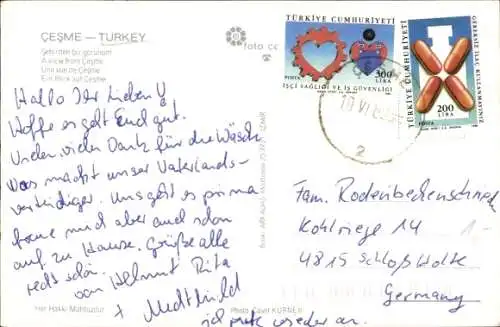 ÇEŞME — TURKEY
Şehirden bir görünüm
A view from Çeşme
Une vue de Çeşme
Ein Blick auf Çeşme
foto
Hallo Ihr Lieben!
Hoffe es geht Euch gut.
Vielen, vielen Dank für die Wäsche
Was macht unser Vaterlands-
verteidiger. Uns geht es prima
freue mich aber auch schon
auf zu Hause. Grüße alle
recht schön.
von Helmut Rita
+ Mechthild
ich rufe wieder an.
Her Hakkı Mahfuzdur
Photo:
TÜRKİYE CUMHURİYETİ
POSTA
300
LİRA
İŞÇİ SAĞLIĞI VE İŞ GÜVENLİĞİ
TÜRKİYE CUMHURİYETİ
GEREKSİZ İLAÇ KULLANMAYINIZ
200
LİRA
POSTA
10 VI
2
Fam. Rodenbeckenschnieder
Kohlriege 14
4815 Schloß Holte
Germany
1-